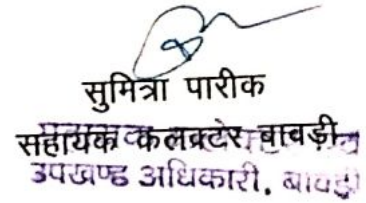 सुमित्रा पारीक
सहायक कलक्टर, बावड़ी
उपखण्ड अधिकारी, बावड़ी